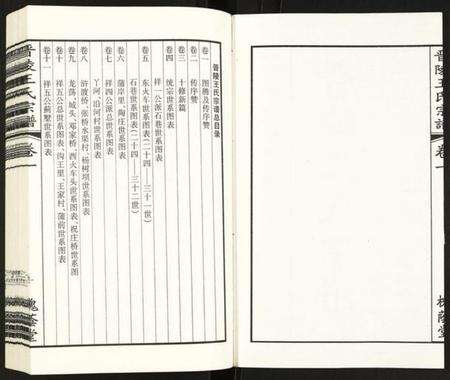 晋陵王氏宗谱
卷一
槐荫堂
晋陵王氏宗谱总目录
卷一 图腾及传序赞
卷二 传序赞
卷三 十修新篇
卷四 统宗世系图表
祥一公派石巷世系图表
卷五 东火车世系图表(二十四——三十一世)
石巷世系图表(二十四——三十二世)
卷六 蒲岸里、陶庄世系图表
卷七 祥四公派总世系图表
丫河、旧河村世系图表
卷八 浒渡桥、张桥水渠村、杨树坝世系图表
卷九 龙荡、城头、邓家桥、西火车头世系图表、祝庄桥世系图
卷十 祥五公总世系图表、沟王里、王家村、蒲前世系图表
卷十一 祥五公蓟墅世系图表
晋陵王氏宗谱
卷一
槐荫堂